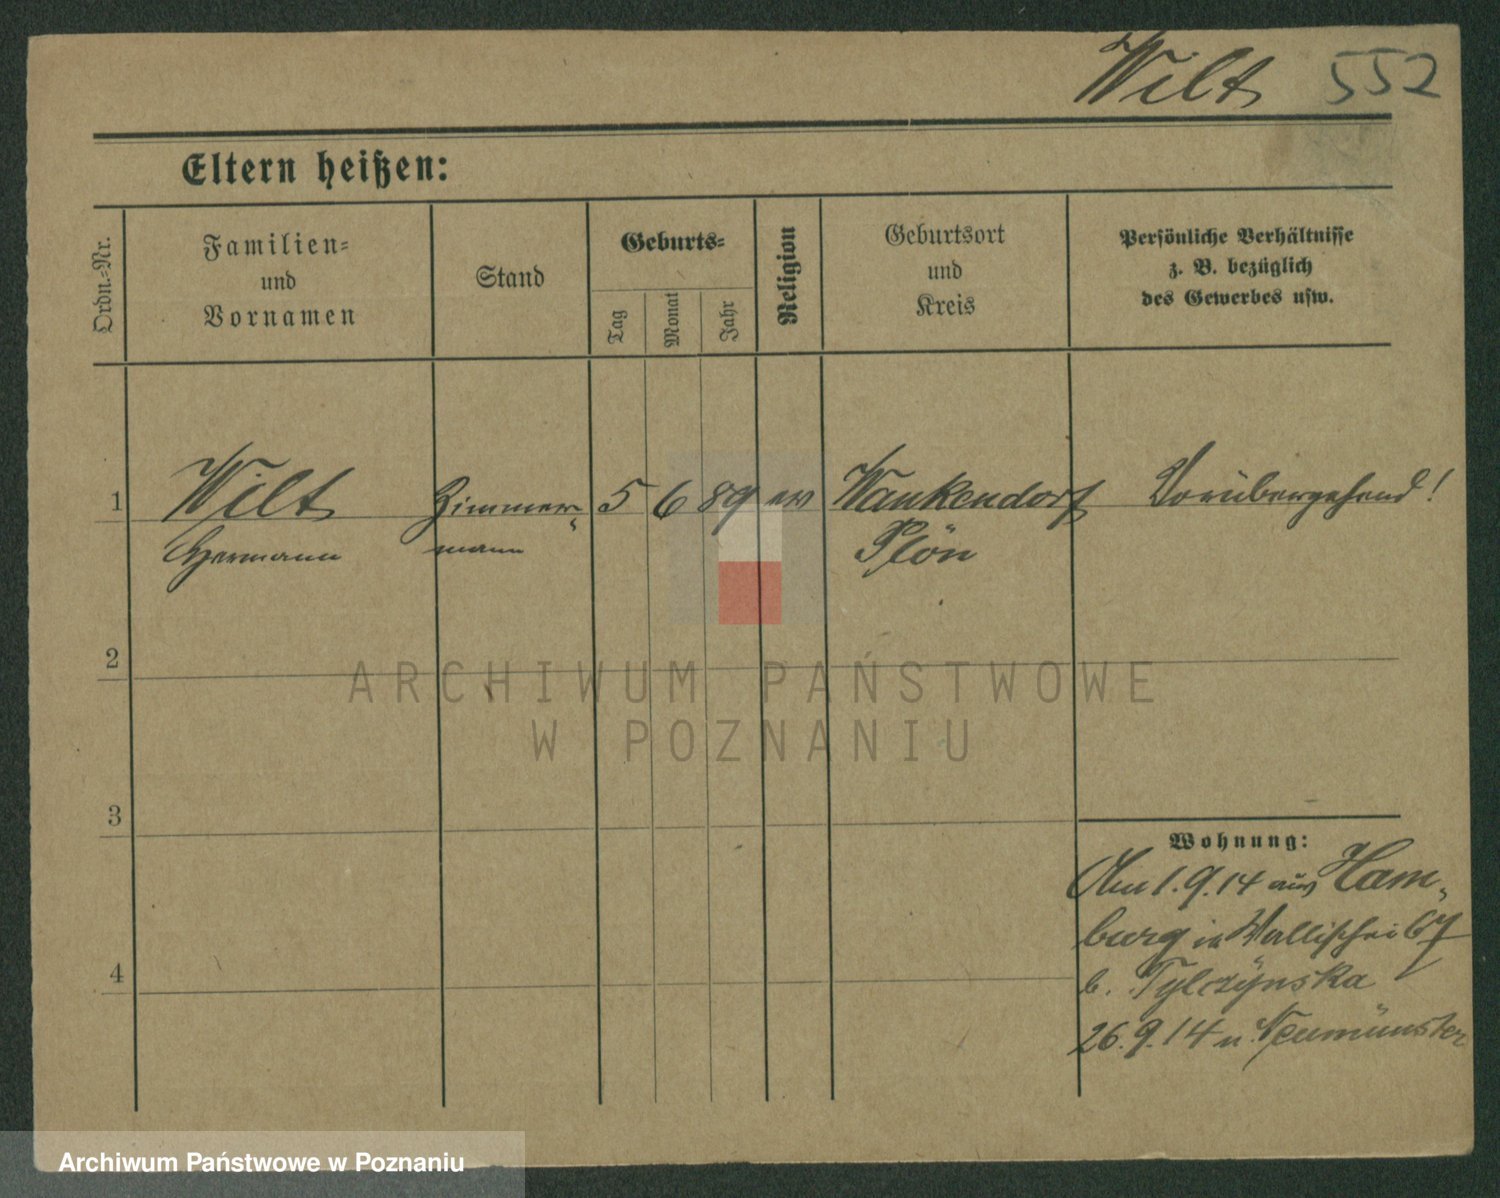 Wilt 552
Eltern heißen:
Ordn.-Nr.
Familien-
und
Vornamen
Stand
Geburts-
Tag
Monat
Jahr
Religion
Geburtsort
und
Kreis
Persönliche Verhältnisse
z. B. bezüglich
des Gewerbes usw.
1 Wilt Zimmer- 5 6 89 ev Wankendorf Vorübergehend!
Hermann mann Plön
2
ARCHIWUM PAŃSTWOWE
W POZNANIU
3
Wohnung:
Am 1.9.14 aus Ham-
burg in Wallischei 67
4
b. Tylczynska
26.9.14 n. Neumünster
Archiwum Państwowe w Poznaniu